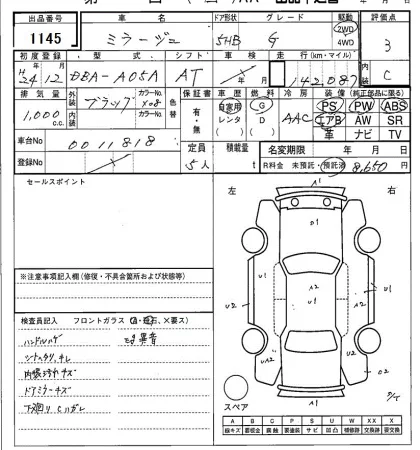 出品番号 車名 ドア形状 グレード 駆動 評価点
1145 ミラージュ 5HB G 2WD 4WD 3
初度登録 型式 シフト 車検 走行 (km・マイル) 内装
H24 12 DBA-A05A AT 142,087 C
排気量 外装 カラーNo. 色替 保証書 車歴 燃料 冷房 装備 (純正部品に限る)
1,000 c.c. ブラック X08 有・無 自家用 レンタ G D AAC PS PW ABS
内装 カラーNo. エアB AW SR
革 ナビ TV
車台No 0011818 定員 積載量 名変期限 年 月 日
登録No 5人 t R料金 未預託・預託済 8,650
セールスポイント
左 右
※注意事項記入欄 (修復・不具合箇所および状態等)
検査員記入 フロントガラス (A・飛石、×要ス)
ハンドルハゲ
シートスリ、キレ
内張汚キズ
ドアミラーキズ
下廻りCハガレ
A1
D1
U1
A2
U1
U2
U2
UA2
A2
D2
A1
スペア
A B C P S U W X XX
線キズ 要板金 腐食 要塗装 サビ 凹凸 補修跡 交換跡 要交換